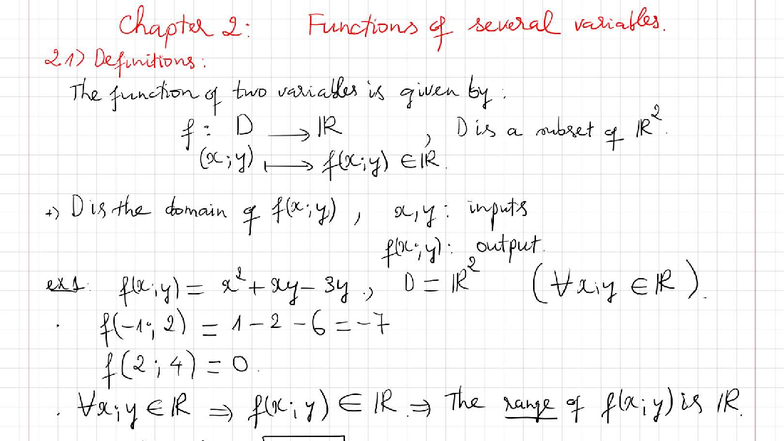 Chapter 2: Functions of several variables.
2.1) Definitions:
The function of two variables is given by:
f: D → IR , D is a subset of IR².
(x;y) ↦ f(x;y) ∈ IR.
+) D is the domain of f(x;y), x,y: inputs
f(x;y): output.
ex1: f(x;y) = x² + xy - 3y, D = IR² (∀x,y ∈ IR).
. f(-1; 2) = 1 - 2 - 6 = -7
f(2; 4) = 0.
. ∀x;y ∈ IR ⇒ f(x;y) ∈ IR. ⇒ The range of f(x;y) is IR.